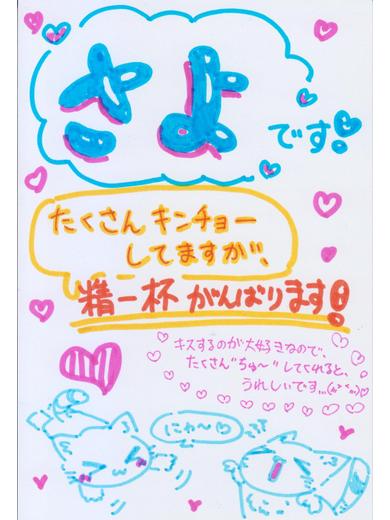 さよ
です!
たくさん キンチョー
してますが、
精一杯 がんばります!
キスするのが大好きなので、
たくさん"ちゅ〜"してくれると、
うれしいです...(〃>﹏<〃)♡
にゃ〜♡